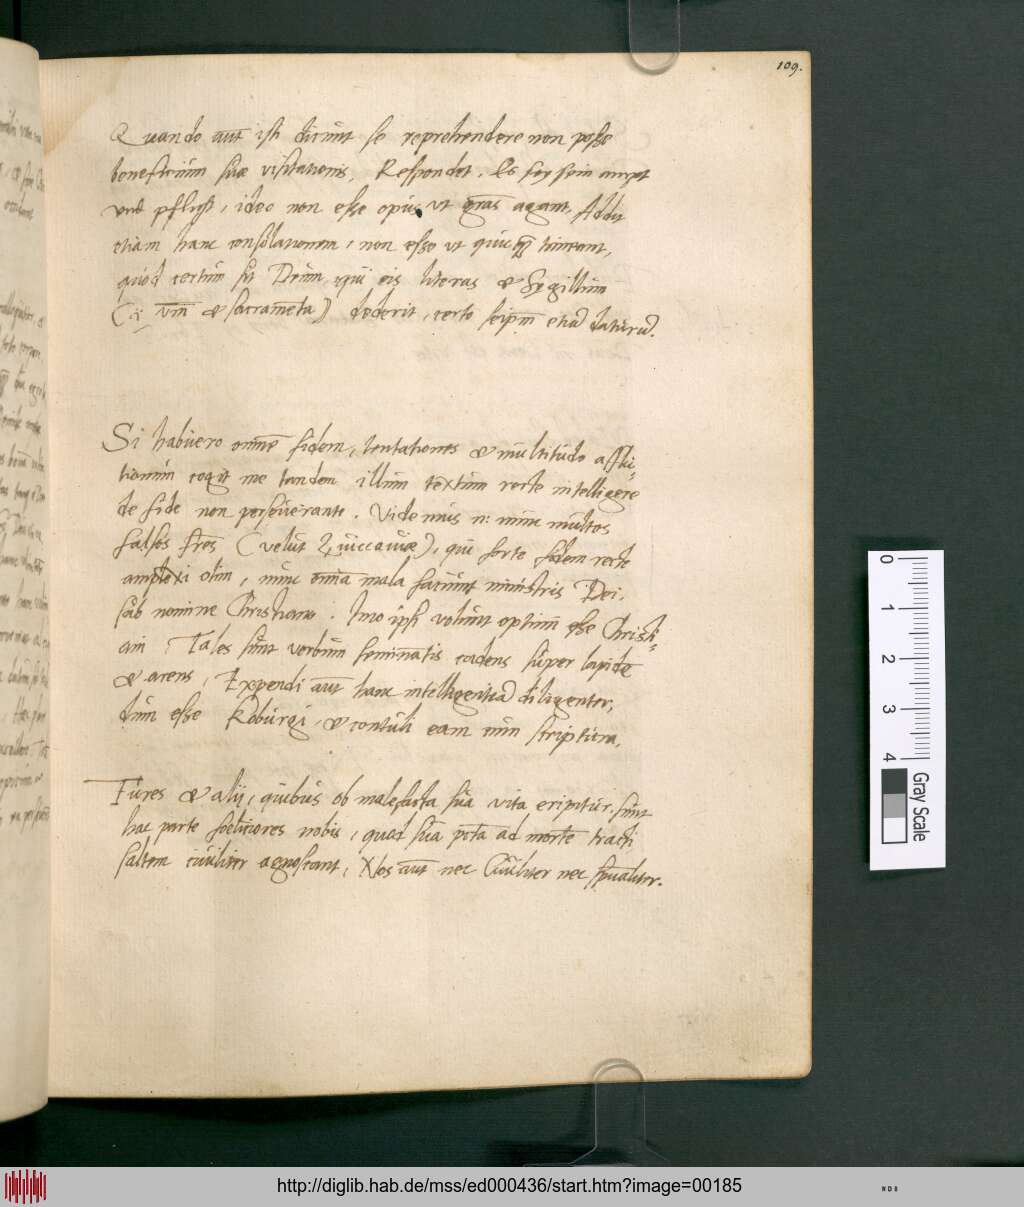 109.
Quando aut isti dicunt se reprehendere non posse
beneficium suae visitationis, Respondet. Es sey sein ampt
und pflicht, ideo non esse opus, ut gras agant, Addit
etiam hanc consolationem, non esse ut quicq timeant,
quod certum sit Deum, qui eis literas et Sygillum
( vm et sacrameta) dederit, certe seipm etia daturu.
Si habuero omne fidem, tentationes et multitudo afflic-
tionum cogit me tandem illum textum recte intelligere
de fide non perseverante. Videmus n: nunc multos
falsos fres (velut Zuiccauiae), qui forte fidem recte
amplexi olim, nunc omia mala faciunt ministris Dei,
sub nomine Christiano. Imo ipsi volunt optimi esse Christi-
ani. Tales sunt verbum seminatis cadens super lapide
et arens, Expendi aut hanc intelligentia diligenter,
dum esse Koburgi, et contuli eam cum scriptura.
Fures et alij, quibus ob malefacta sua vita eripitur, sunt
hac parte foeliciores nobis, quod sua pcta ad morte tracti
saltem ciuiliter agnoscant, Nos aut nec Ciuiliter nec spualiter.
0
1
2
3
4
Gray Scale
http://diglib.hab.de/mss/ed000436/start.htm?image=00185